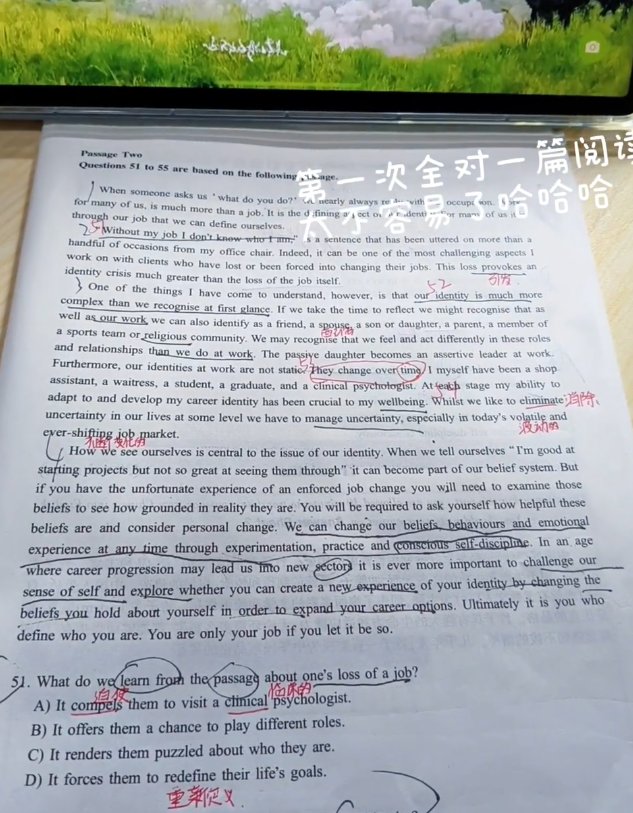 第一次全对一篇阅读
太不容易了哈哈哈
Passage Two
Questions 51 to 55 are based on the following passage.
When someone asks us "what do you do?" nearly always with occupation.
for many of us, is much more than a job. It is the defining aspect of identity for many of us it
through our job that we can define ourselves.
"Without my job I don't know who I am," is a sentence that has been uttered on more than a
handful of occasions from my office chair. Indeed, it can be one of the most challenging aspects I
work on with clients who have lost or been forced into changing their jobs. This loss provokes an
引发
identity crisis much greater than the loss of the job itself.
52
One of the things I have come to understand, however, is that our identity is much more
complex than we recognise at first glance. If we take the time to reflect we might recognise that as
well as our work we can also identify as a friend, a spouse, a son or daughter, a parent, a member of
a sports team or religious community. We may recognise that we feel and act differently in these roles
and relationships than we do at work. The passive daughter becomes an assertive leader at work.
53
Furthermore, our identities at work are not static. They change over time. I myself have been a shop
assistant, a waitress, a student, a graduate, and a clinical psychologist. At each stage my ability to
54
adapt to and develop my career identity has been crucial to my wellbeing. Whilst we like to eliminate 消除
uncertainty in our lives at some level we have to manage uncertainty, especially in today's volatile and
波动的
ever-shifting job market.
不断变化的
How we see ourselves is central to the issue of our identity. When we tell ourselves "I'm good at
starting projects but not so great at seeing them through" it can become part of our belief system. But
if you have the unfortunate experience of an enforced job change you will need to examine those
beliefs to see how grounded in reality they are. You will be required to ask yourself how helpful these
beliefs are and consider personal change. We can change our beliefs, behaviours and emotional
experience at any time through experimentation, practice and conscious self-discipline. In an age
where career progression may lead us into new sectors it is ever more important to challenge our
sense of self and explore whether you can create a new experience of your identity by changing the
beliefs you hold about yourself in order to expand your career options. Ultimately it is you who
define who you are. You are only your job if you let it be so.
51. What do we learn from the passage about one's loss of a job?
迫使 临床的
A) It compels them to visit a clinical psychologist.
B) It offers them a chance to play different roles.
C) It renders them puzzled about who they are.
D) It forces them to redefine their life's goals.
重新定义